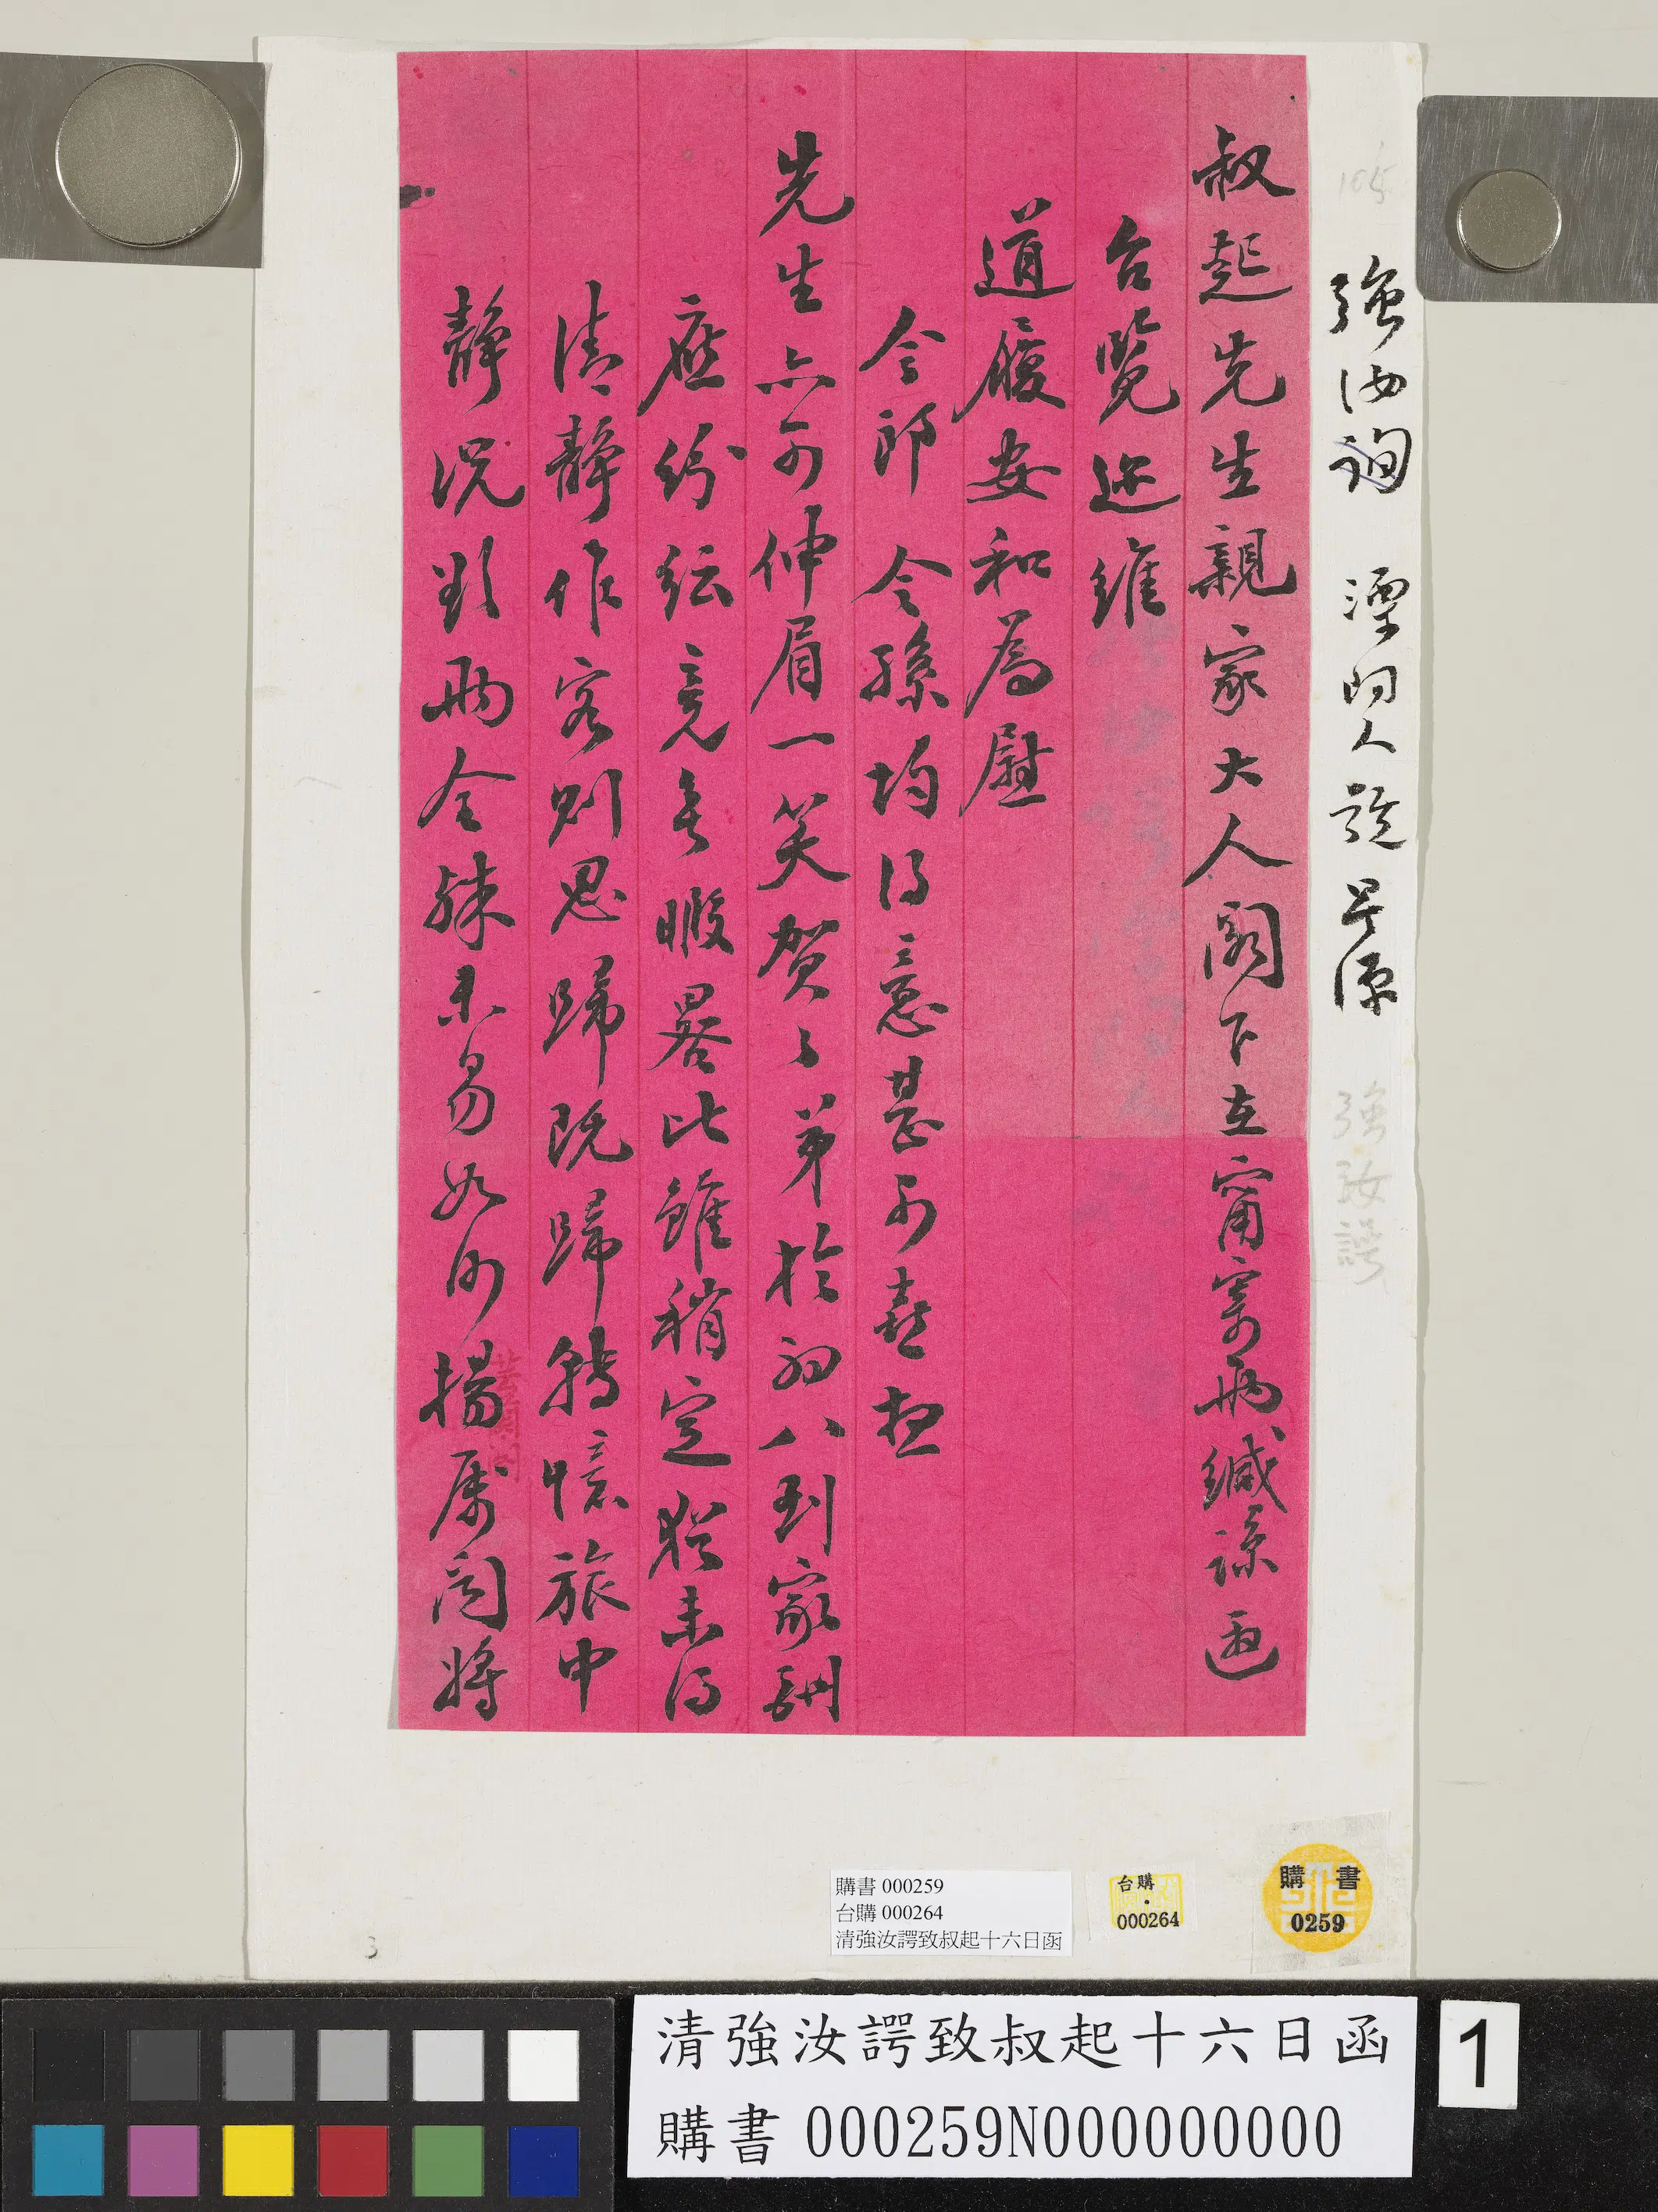 105
強汝詢 溧陽人 號 賡源
強汝諤
叔起先生親家大人閣下在甯寄兩緘諒邀
台覽遙維
道履安和為慰
令郎 令孫均得意甚可喜想
先生亦可伸眉一笑賀〻弟於初八到家酬
應紛紜竟無暇晷比雖稍定猶未得
清靜作客則思歸既歸轉憶旅中
靜況欲兩全殊未易如何揚屬聞將
3
購書 000259
台購 000264
清強汝諤致叔起十六日函
台購
000264
購書
0259
清強汝諤致叔起十六日函
購書 000259N000000000
1